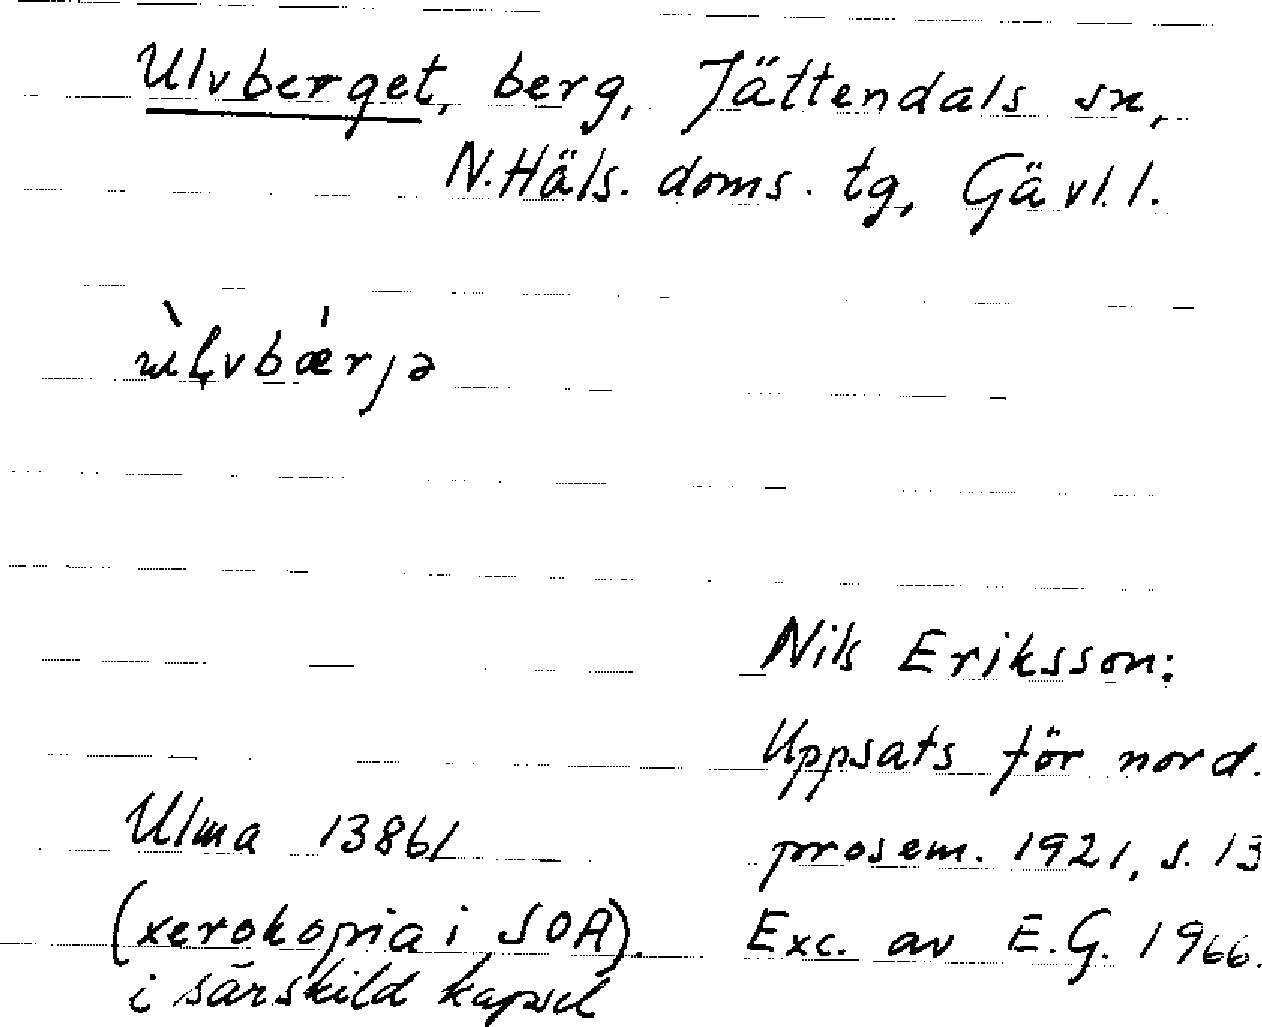 Ulvberget, berg, Jättendals sn,
N. Häls. doms. tg, Gävl. l.
ùḷvbǽrjə
Nils Eriksson:
Uppsats för nord.
prosem. 1921, s. 13
Exc. av E.G. 1966.
Ulma 13861
(xerokopia i SOA).
i särskild kapsel